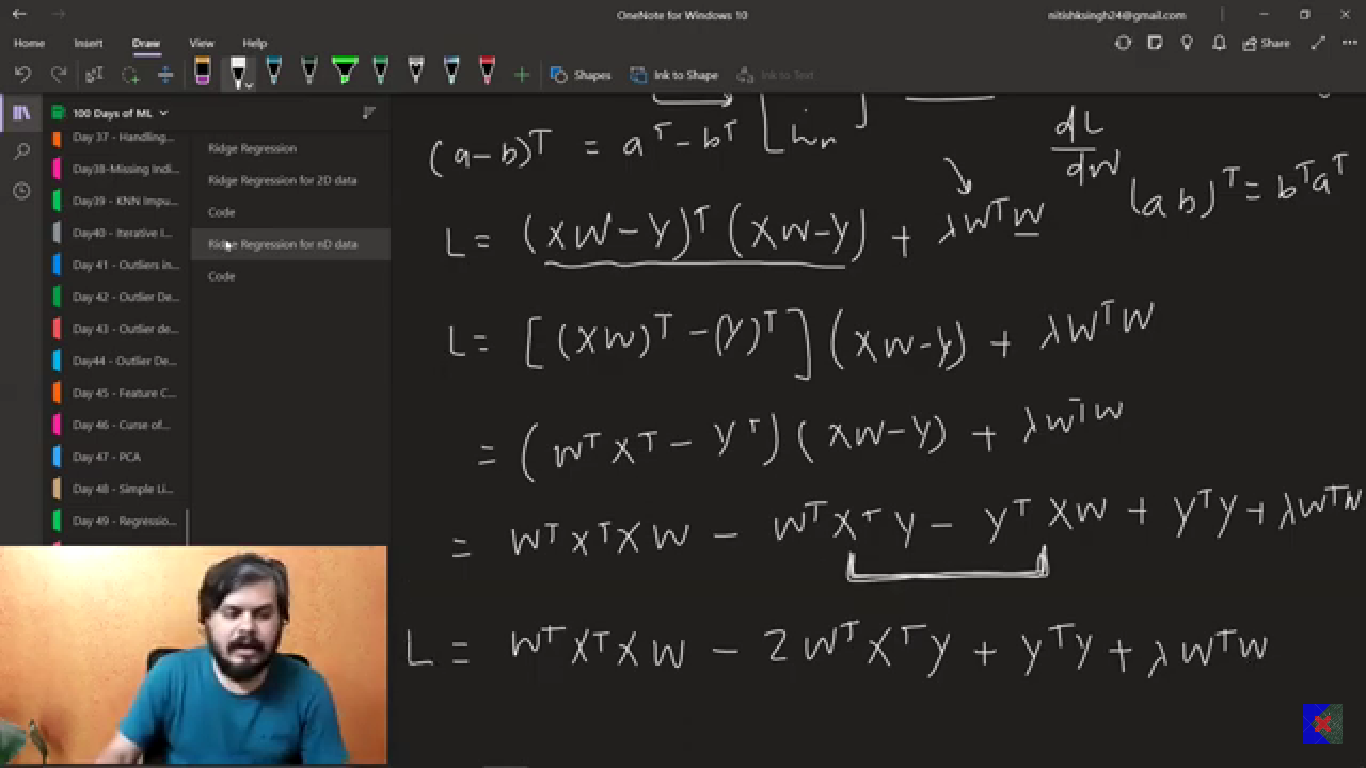 OneNote for Windows 10
nitishksingh24@gmail.com
Home Insert Draw View Help
Share
Shapes Ink to Shape Ink to Text
100 Days of ML
Day 37 - Handling...
Day38-Missing Indi...
Day39 - KNN Impu...
Day40 - Iterative I...
Day 41 - Outliers in...
Day 42 - Outlier De...
Day 43 - Outlier de...
Day44 - Outlier De...
Day 45 - Feature C...
Day 46 - Curse of...
Day 47 - PCA
Day 48 - Simple Li...
Day 49 - Regressio...
Ridge Regression
Ridge Regression for 2D data
Code
Ridge Regression for nD data
Code
(a-b)ᵀ = aᵀ-bᵀ
dL
dW
(ab)ᵀ = bᵀaᵀ
L = (XW-Y)ᵀ (XW-Y) + λWᵀW
L = [(XW)ᵀ - (Y)ᵀ] (XW-Y) + λWᵀW
= (WᵀXᵀ - Yᵀ) (XW-Y) + λWᵀW
= WᵀXᵀXW - WᵀXᵀY - YᵀXW + YᵀY + λWᵀW
L = WᵀXᵀXW - 2WᵀXᵀY + YᵀY + λWᵀW